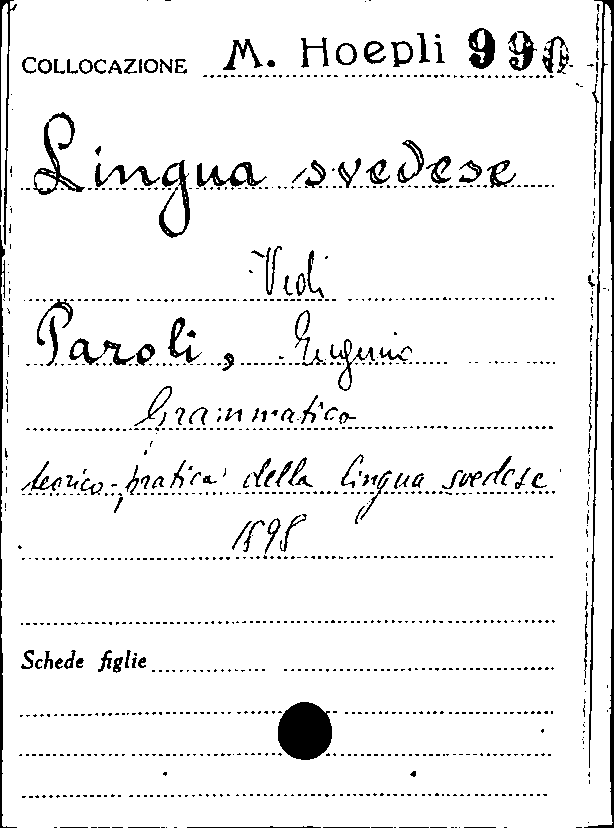 COLLOCAZIONE M. Hoepli 990
Lingua svedese
Vedi
Paroli, Eugenio
Grammatica
teorico-pratica della lingua svedese
1898
Schede figlie